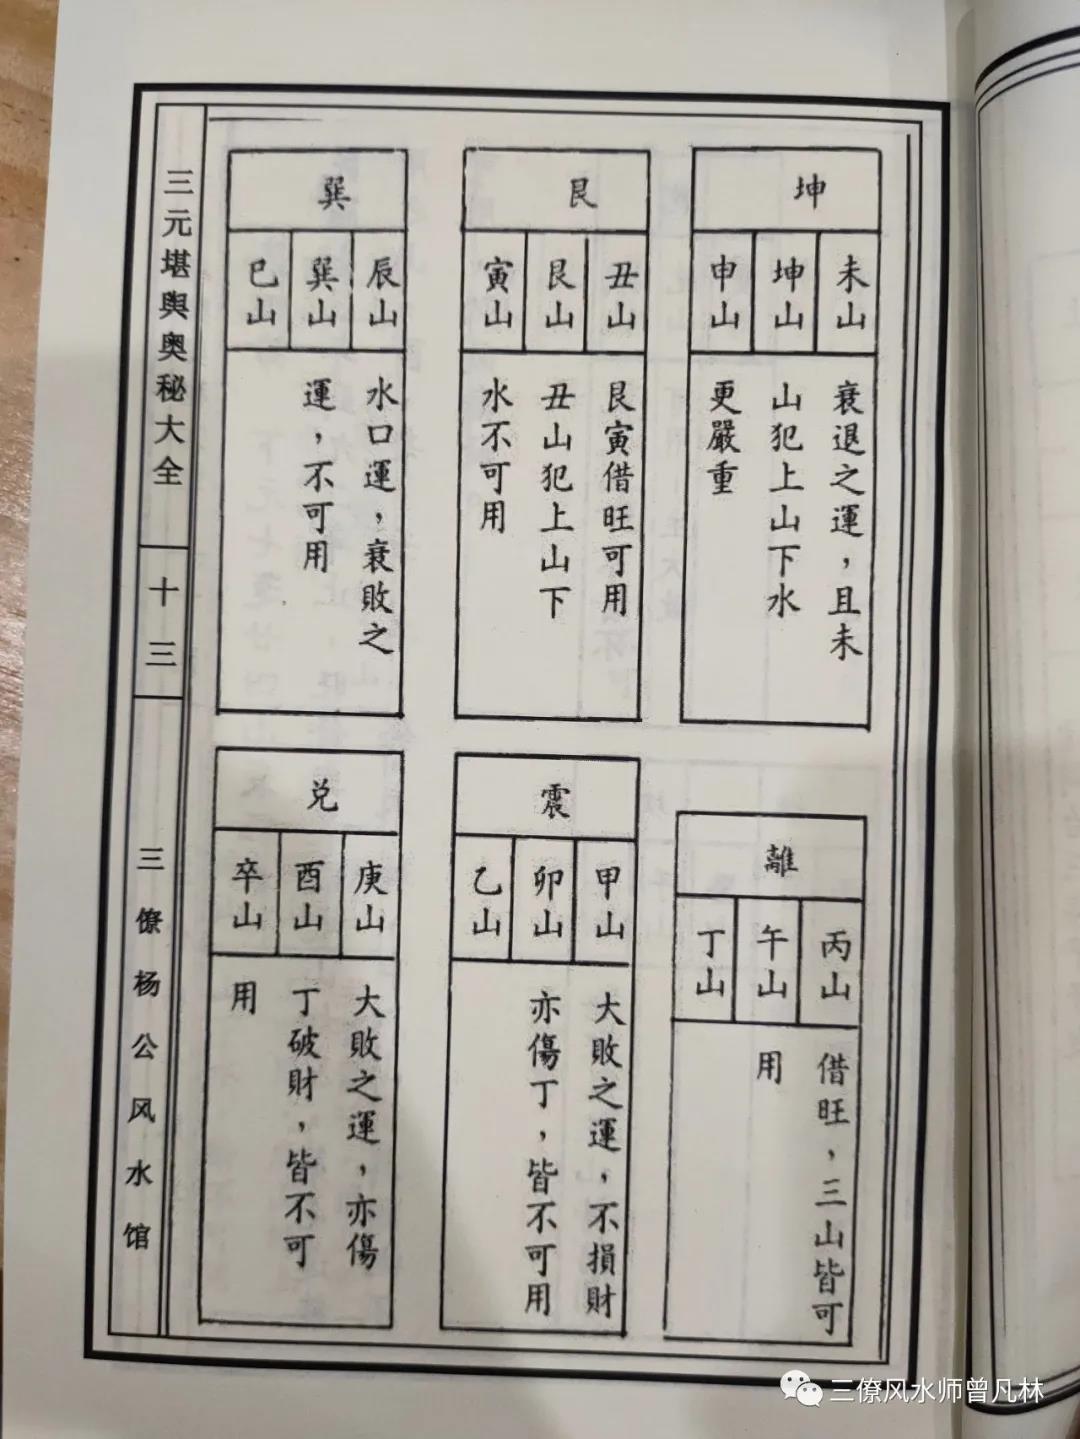 坤
未山
坤山
申山
衰退之運，且未
山犯上山下水
更嚴重
艮
丑山
艮山
寅山
艮寅借旺可用
丑山犯上山下
水不可用
巽
辰山
巽山
巳山
水口運，衰敗之
運，不可用
離
丙山
午山
丁山
借旺，三山皆可
用
震
甲山
卯山
乙山
大敗之運，不損財
亦傷丁，皆不可用
兑
庚山
酉山
卒山
大敗之運，亦傷
丁破財，皆不可
用
三元堪輿奥秘大全
十三
三僚杨公风水馆
三僚风水师曾凡林